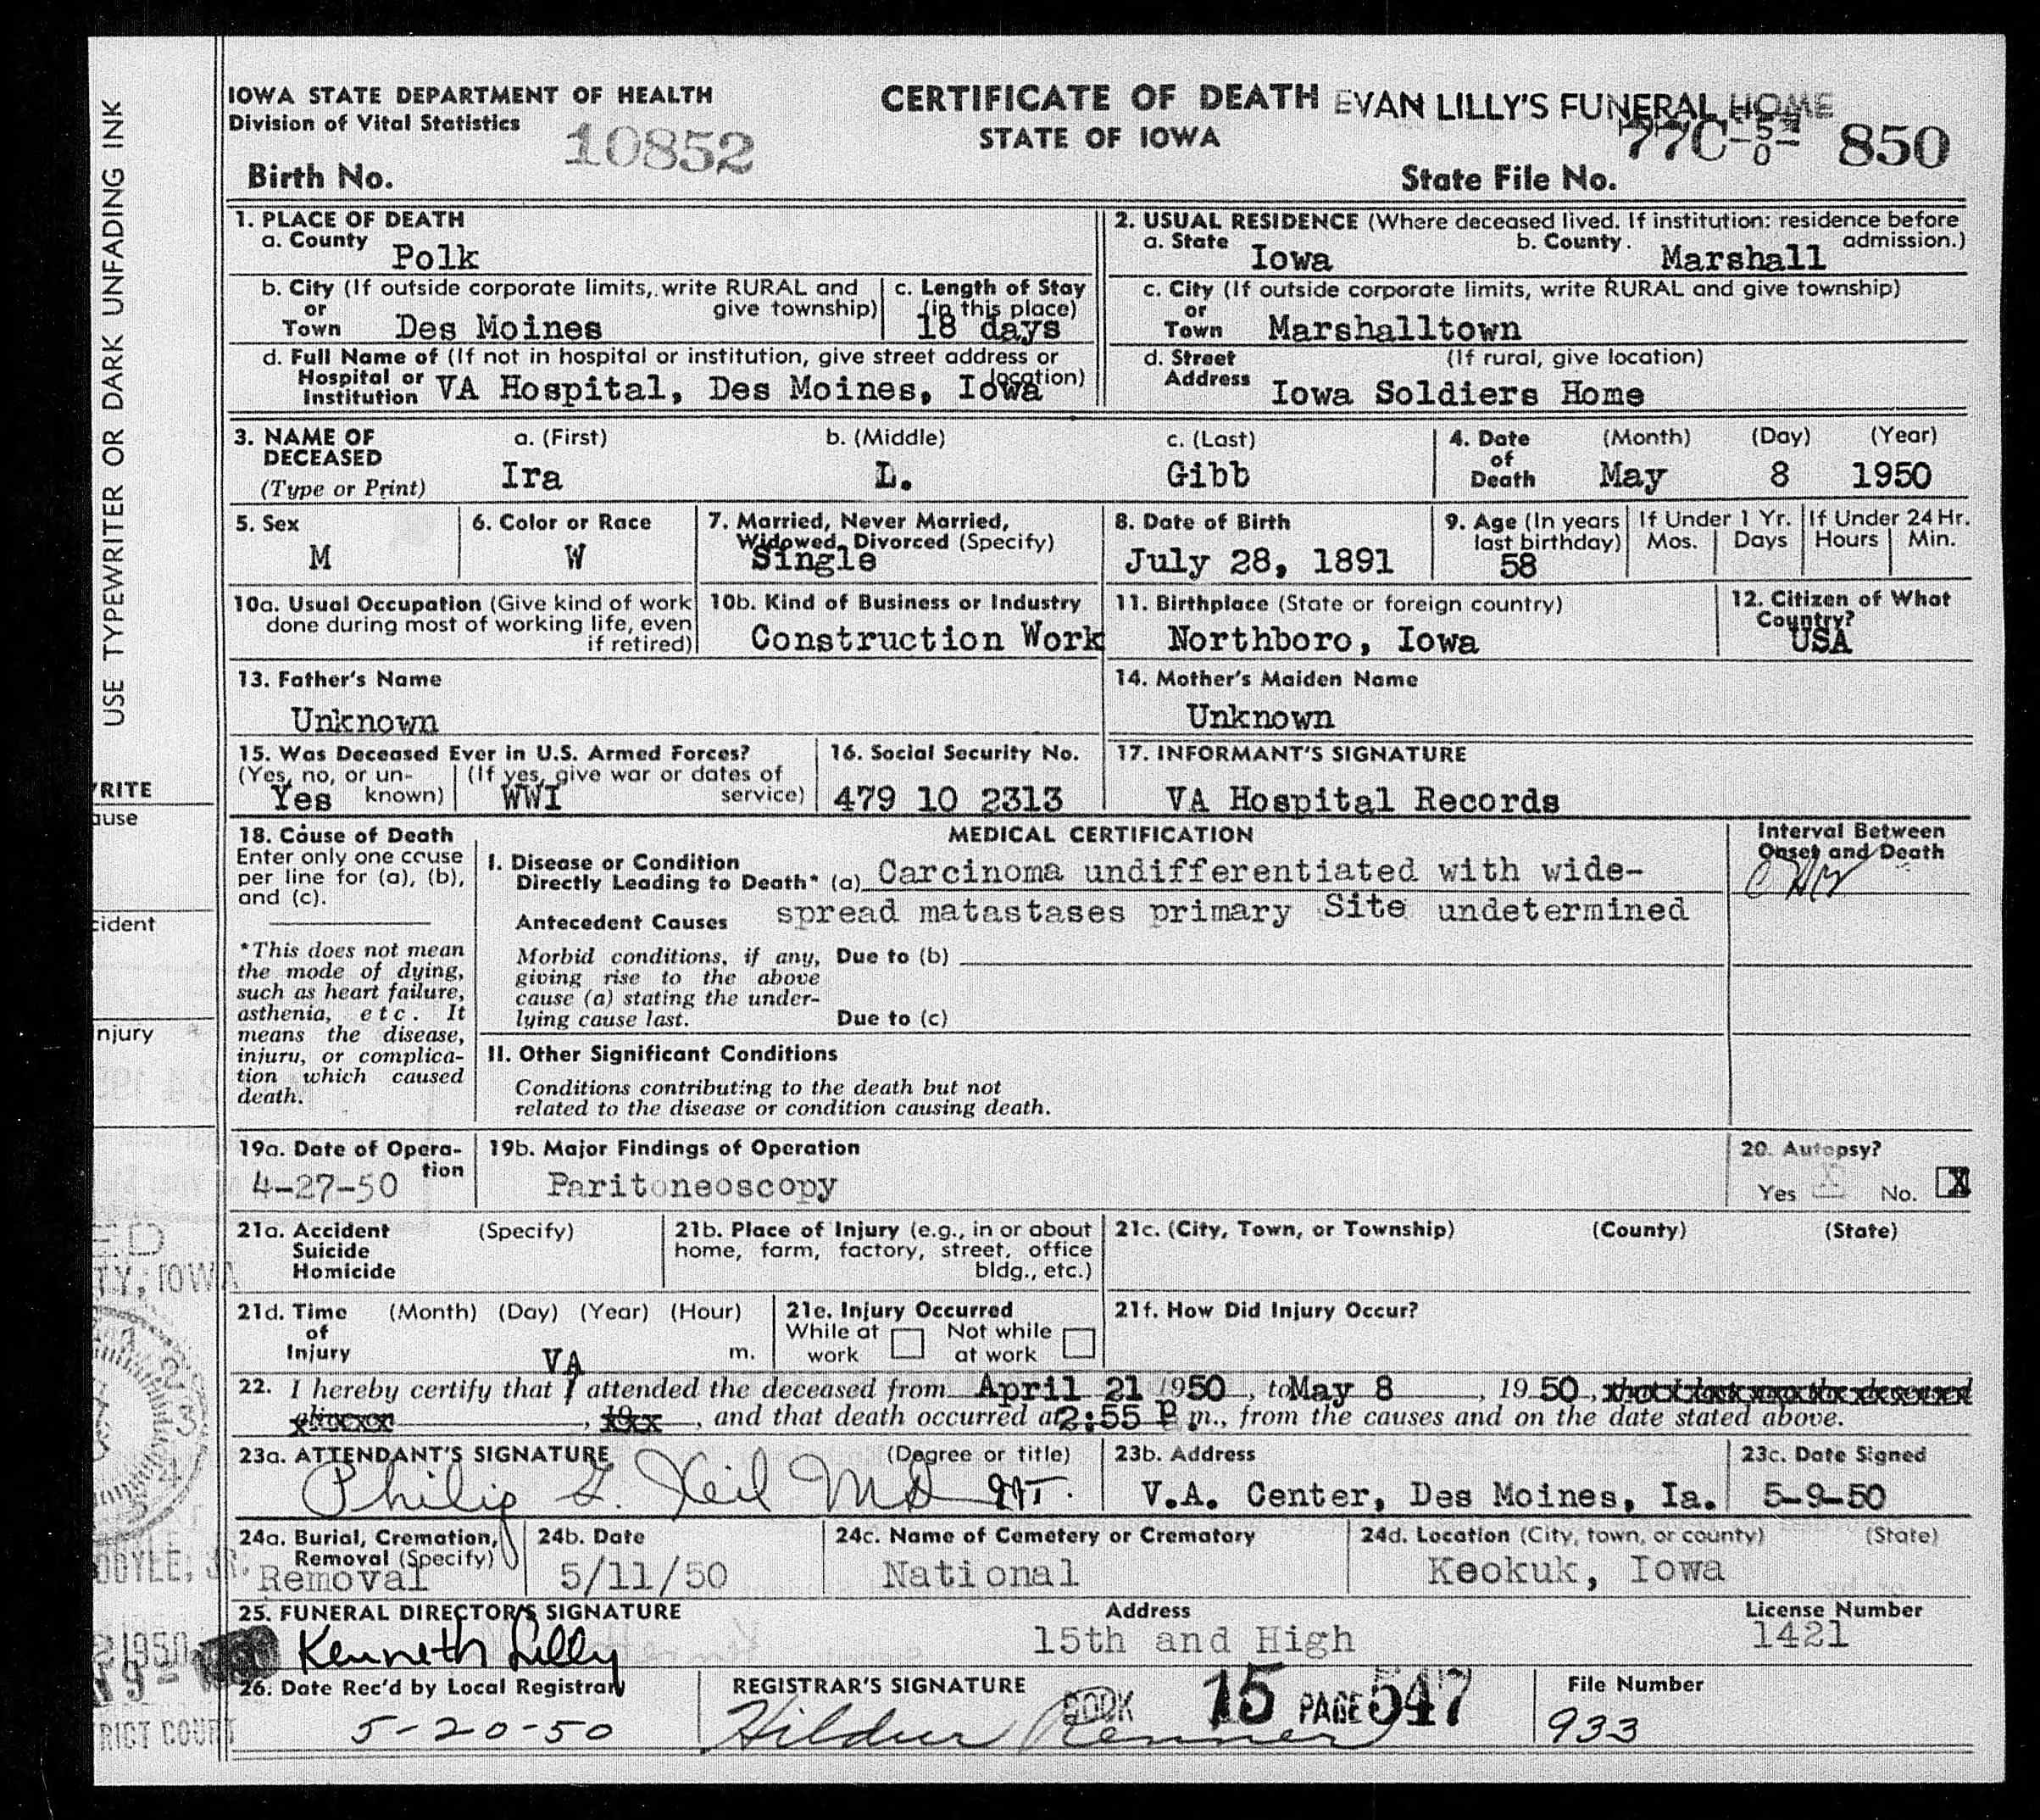 USE TYPEWRITER OR DARK UNFADING INK
IOWA STATE DEPARTMENT OF HEALTH
Division of Vital Statistics
10852
Birth No.
CERTIFICATE OF DEATH
STATE OF IOWA
EVAN LILLY'S FUNERAL HOME
77C-
850
State File No.
1. PLACE OF DEATH
a. County
Polk
b. City (If outside corporate limits, write RURAL and
or give township)
Town Des Moines
c. Length of Stay
(in this place)
18 days
d. Full Name of (If not in hospital or institution, give street address or
Hospital or location)
Institution VA Hospital, Des Moines, Iowa
2. USUAL RESIDENCE (Where deceased lived. If institution: residence before
admission.)
a. State Iowa b. County. Marshall
c. City (If outside corporate limits, write RURAL and give township)
or
Town Marshalltown
d. Street (If rural, give location)
Address Iowa Soldiers Home
3. NAME OF a. (First) b. (Middle) c. (Last)
DECEASED
(Type or Print) Ira L. Gibb
4. Date (Month) (Day) (Year)
of
Death May 8 1950
5. Sex
M
6. Color or Race
W
7. Married, Never Married,
Widowed, Divorced (Specify)
Single
8. Date of Birth
July 28, 1891
9. Age (In years
last birthday)
58
If Under 1 Yr.
Mos. Days
If Under 24 Hr.
Hours Min.
10a. Usual Occupation (Give kind of work
done during most of working life, even
if retired)
10b. Kind of Business or Industry
Construction Work
11. Birthplace (State or foreign country)
Northboro, Iowa
12. Citizen of What
Country?
USA
13. Father's Name
Unknown
14. Mother's Maiden Name
Unknown
15. Was Deceased Ever in U.S. Armed Forces?
(Yes, no, or un-
known)
Yes
(If yes, give war or dates of
service)
WWI
16. Social Security No.
479 10 2313
17. INFORMANT'S SIGNATURE
VA Hospital Records
18. Cause of Death
Enter only one cause
per line for (a), (b),
and (c).
*This does not mean
the mode of dying,
such as heart failure,
asthenia, etc. It
means the disease,
injury, or complica-
tion which caused
death.
MEDICAL CERTIFICATION
I. Disease or Condition
Directly Leading to Death* (a) Carcinoma undifferentiated with wide-
Antecedent Causes spread matastases primary Site undetermined
Morbid conditions, if any, Due to (b)
giving rise to the above
cause (a) stating the under-
lying cause last. Due to (c)
II. Other Significant Conditions
Conditions contributing to the death but not
related to the disease or condition causing death.
Interval Between
Onset and Death
19a. Date of Opera-
tion
4-27-50
19b. Major Findings of Operation
Paritoneoscopy
20. Autopsy?
Yes No. X
21a. Accident (Specify)
Suicide
Homicide
21b. Place of Injury (e.g., in or about
home, farm, factory, street, office
bldg., etc.)
21c. (City, Town, or Township) (County) (State)
21d. Time (Month) (Day) (Year) (Hour)
of
Injury m.
21e. Injury Occurred
While at Not while
work at work
21f. How Did Injury Occur?
VA
22. I hereby certify that I attended the deceased from April 21 1950, to May 8, 1950,
and that death occurred at 2:55 P. m., from the causes and on the date stated above.
23a. ATTENDANT'S SIGNATURE (Degree or title)
Philip G. Keil MD
23b. Address
V.A. Center, Des Moines, Ia.
23c. Date Signed
5-9-50
24a. Burial, Cremation,
Removal (Specify)
Removal
24b. Date
5/11/50
24c. Name of Cemetery or Crematory
National
24d. Location (City, town, or county) (State)
Keokuk, Iowa
25. FUNERAL DIRECTOR'S SIGNATURE Address License Number
Kenneth Lilly 15th and High 1421
26. Date Rec'd by Local Registrar
5-20-50
REGISTRAR'S SIGNATURE
Hildur Renner
BOOK 15 PAGE 547
File Number
933